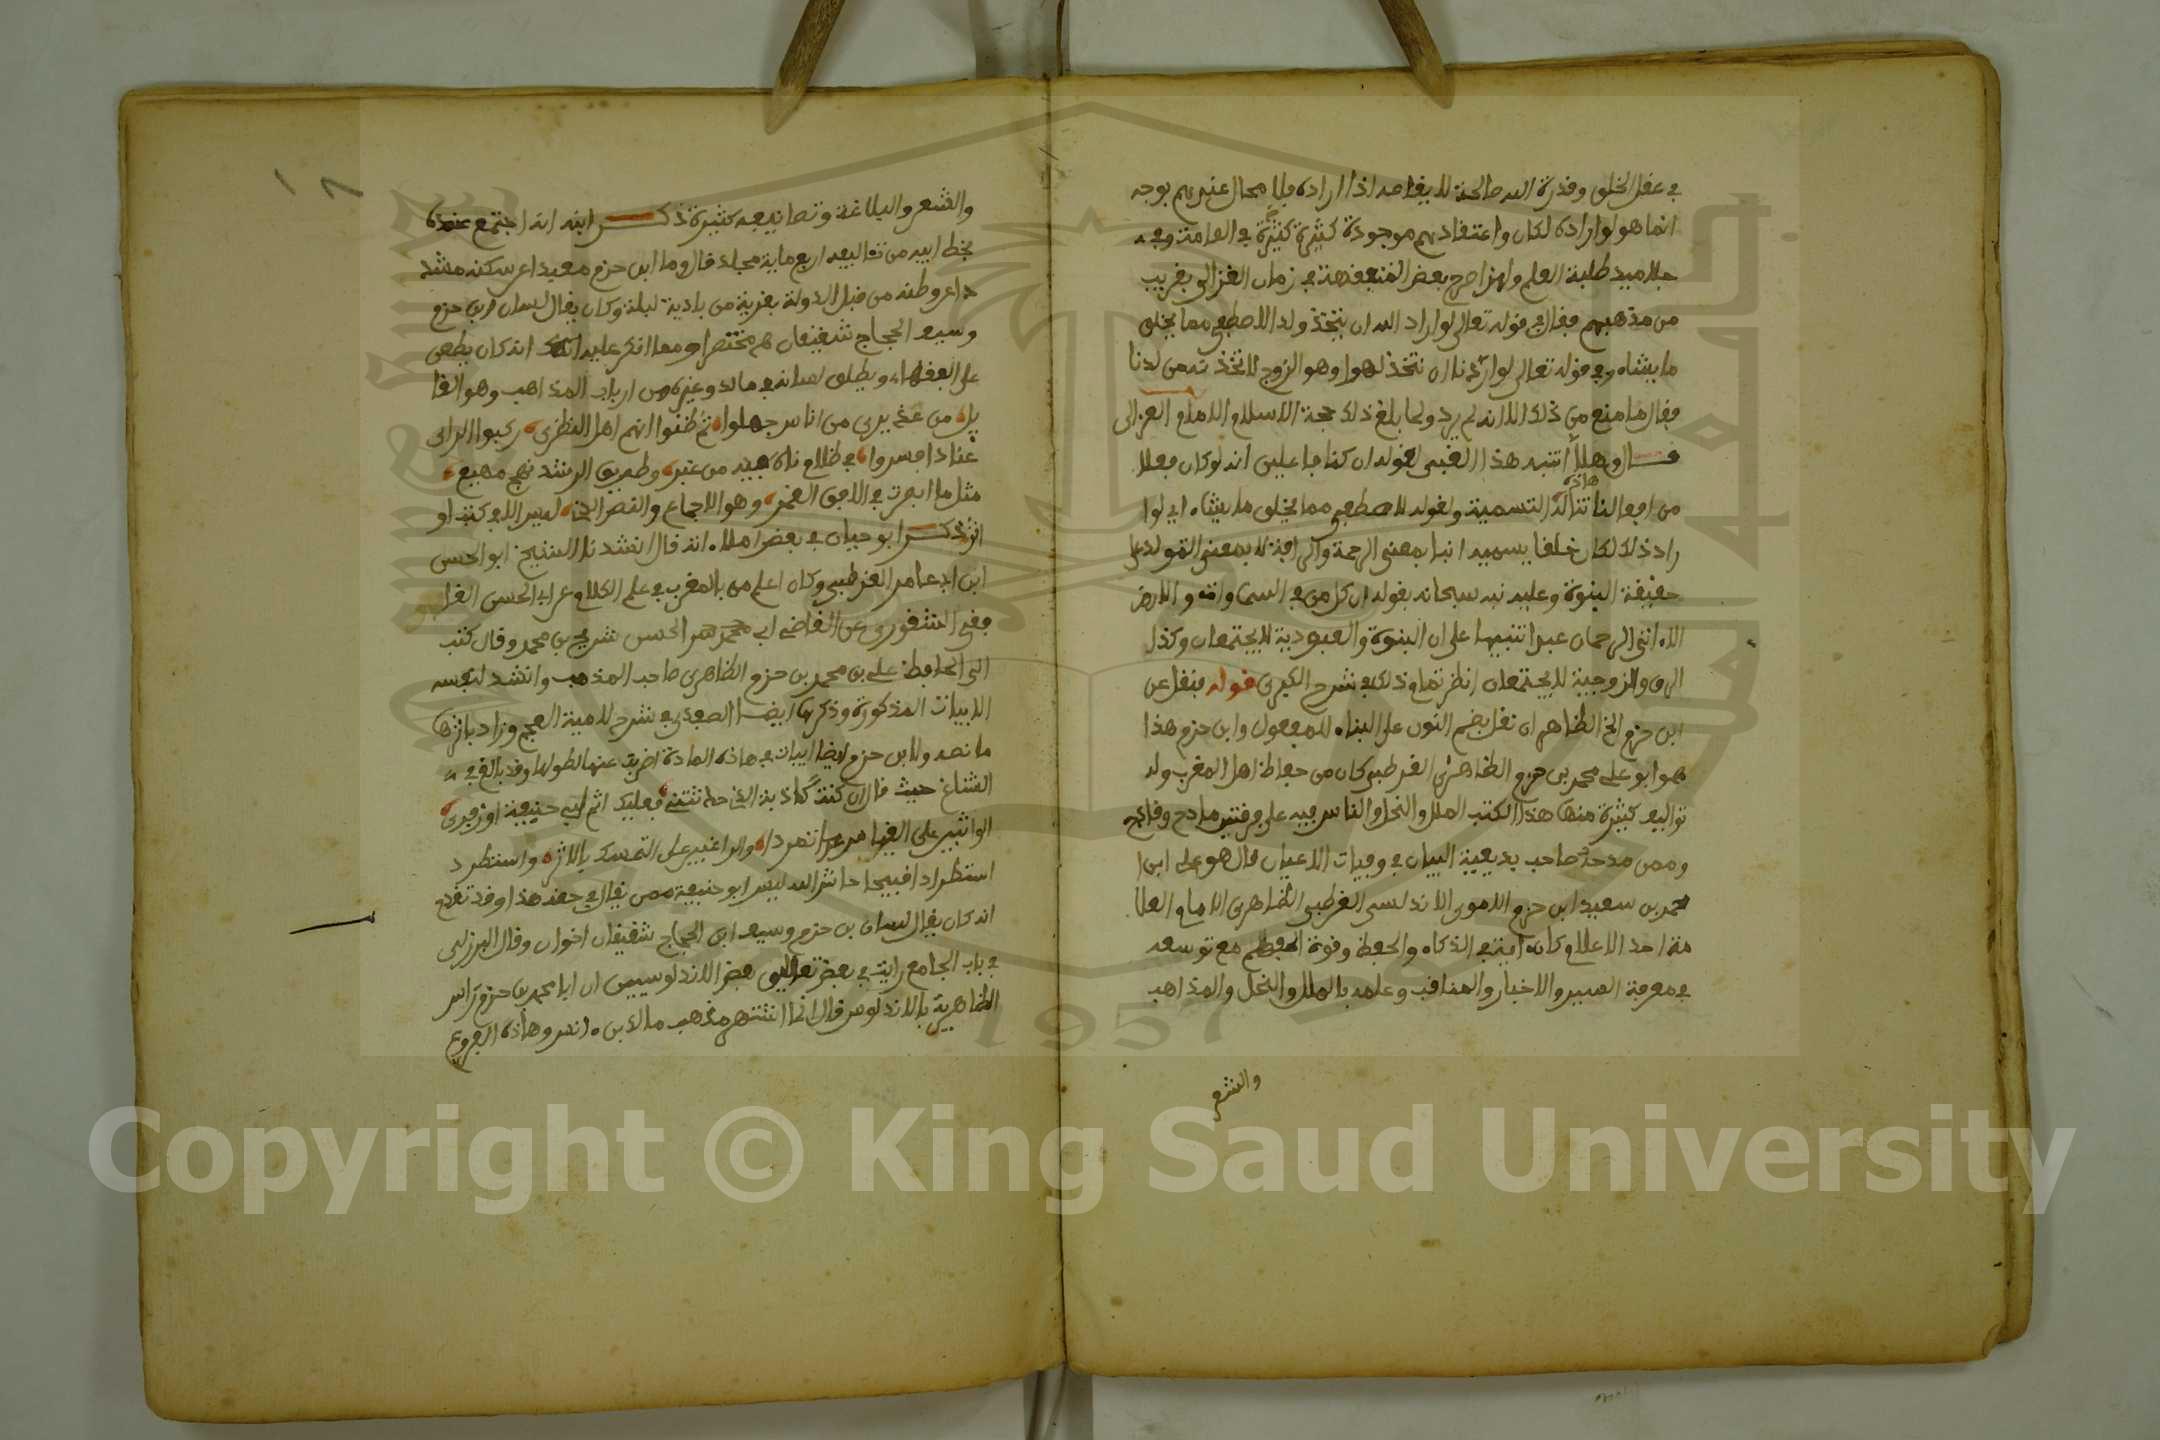 في عقل الخلق وقدرة الله صالحة لا يقاصه اذا اراده فلا محال عندهم بوجه
انما هو لو اراده لكان واعتقادهم موجودة كثيرة كثيرة في العامة وفي
جلاميد طلبة العلم ولهذا صرح بعض المتفقهة في زمان الغزالي بقريب
من مذهبهم فقال في قوله تعالى لو اراد الله ان يتخذ ولدا لاصطفى مما يخلق
ما يشاء وفي قوله تعالى لو اردنا ان نتخذ لهوا وهو الزوج لاتخذناه من لدنا
فقال ما منع من ذلك الا انه لم يرد ولما بلغ ذلك حجة الاسلام الامام الغزالي
قال وهلا انتبه هذا الغبي لقوله ان كنا فاعلين انه لو كان فعلا
من افعالنا هاذه التسمية ولقوله لاصطفى مما يخلق ما يشاء اي لو ا
راد ذلك لكان خلقا يسميه ابنا بمعنى الرحمة والرافة لا بمعنى التولد على
حقيقة البنوة وعليه نبه سبحانه بقوله ان كل من في السماوات والارض
الا اتي الرحمان عبدا تنبيها على ان البنوة والعبودية لا يجتمعان وكذا
الرق والزوجية لا يجتمعان انظر تمام ذلك في شرح الكبرى قوله فنقل عن
ابن حزم الخ الظاهر ان نقل بضم النون على البناء للمفعول وابن حزم هذا
هو ابو علي محمد بن حزم الظاهري القرطبي كان من حفاظ اهل المغرب وله
تواليف كثيرة منها هذا الكتب الملل والنحل والناس فيه على فرقتين مادح وقادح
وممن مدحه صاحب بديعية البيان في وفيات الاعيان قال هو علي ابن ا
محمد بن سعيد ابن حزم الاموي الاندلسي القرطبي الظاهري الامام العلا
مة احد الاعلام كان اية في الذكاء والحفظ وقوة الفهم مع توسعه
في معرفة السير والاخبار والمناقب وعلمه بالملل والنحل والمذاهب
والشعر
١٨
والشعر والبلاغة وتصانيفه كثيرة ذكر ابنه انه اجتمع عنده
بخط ابيه من تواليفه اربعماية مجلد قال وما ابن حزم مبعيدا عن سكنه مشر
دا عن وطنه من قبل الدولة بقرية من بادية لبلة وكان يقال لسان ابن حزم
وسيف الحجاج شقيقان ومما انكر عليه انه كان يطعن
على الفقهاء ويطلق لسانه في مالك وغيره من ارباب المذاهب وهو القا
يل من عذيري من اناس جهلوا ثم ظنوا انهم اهل النظر ركبوا الراي
عنادا فسروا في ظلام تاه فيه من عبر وطريق الرشد نهج مهيع
مثل ما ابصرت في الافق القمر وهو الاجماع والنص الذي ليس الا في كتاب او
اثر ذكر ابو حيان في بعض املاءاته قال انشدنا الشيخ ابو الحسن
ابن ابي عامر القرطبي وكان اعلم من بالمغرب في علم الكلام عن ابي الحسن
الشقوري عن القاضي ابي الحسن شريح بن محمد وقال كتب
الي الحافظ علي بن محمد بن حزم الظاهري صاحب المذهب وانشد لنفسه
الابيات المذكورة وذكرها ايضا الصفدي في شرح لامية العجم وزاد باثرها
ما نصه ولابن حزم ايضا ابيات في هاذه المادة اضربت عنها لطولها وقد بالغ في
الشناع حيث قال ان كنت كاذبة الذي حدثتني فعليك اثم ابي حنيفة او زفر
الواثبين على القياس تمردا والراغبين على التمسك بالاثر واستطرد
استطرادا قبيحا حاش الله ليس ابو حنيفة ممن يقال في حقه هذا وقد تقدم
انه كان يقال لسان بن حزم وسيف ابن الحجاج شقيقان اخوان وقال البرزلي
في باب الجامع رايت في بعض تعاليق بعض الاندلوسيين ان ابا محمد بن حزم راس
الظاهرية بالاندلوس قال انما انتشر مذهب مالك بن انس وهاذه الفروع